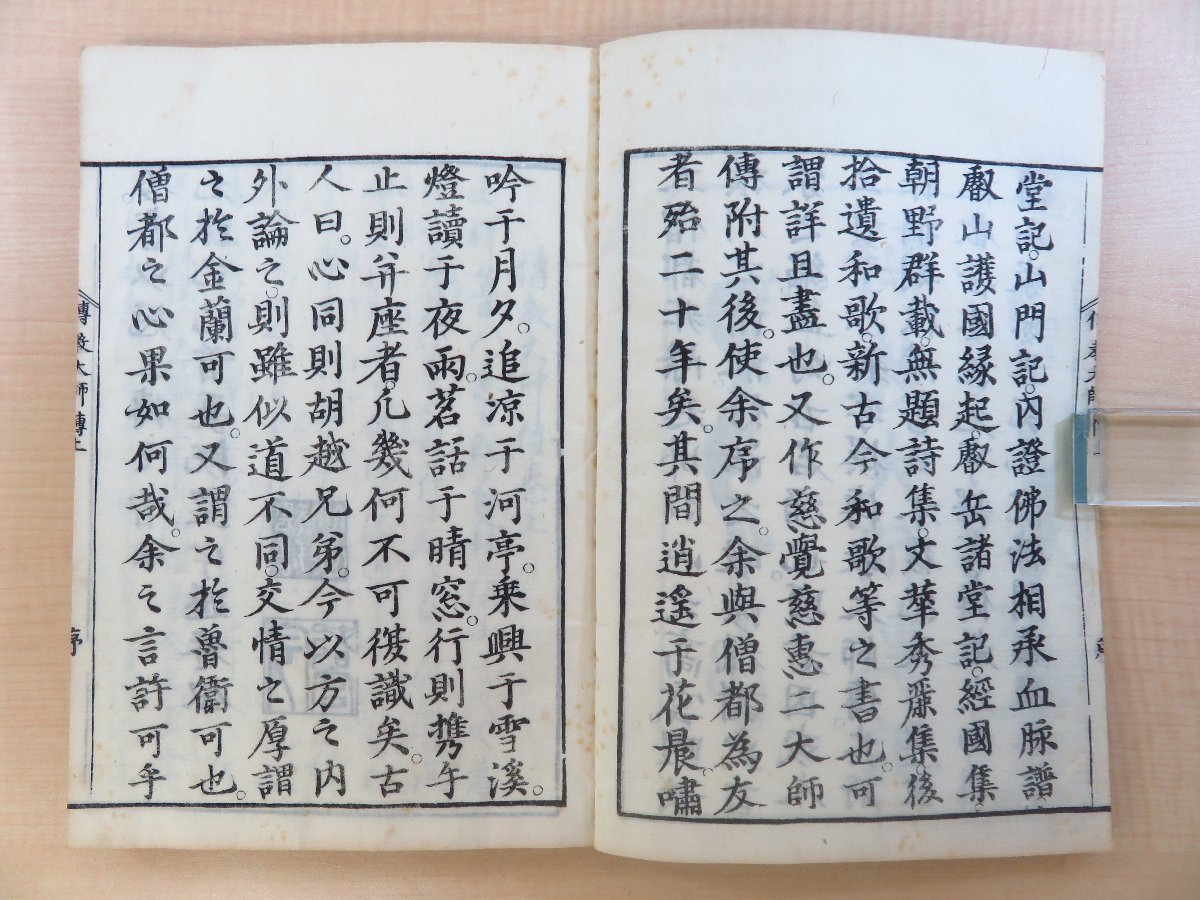 堂記。山門記。內證佛法相承血脉譜
叡山護國緣起。叡岳諸堂記。經國集
朝野群載。無題詩集。文華秀麗集後
拾遺和歌。新古今和歌等之書也。可
謂詳且盡也。又作慈覺慈惠二大師
傳附其後。使余序之。余與僧都為友
者殆二十年矣。其間逍遙于花晨。嘯
吟于月夕。追涼于河亭。乘興于雪溪。
燈讀于夜雨。茗話于晴窓。行則携手
止則并座者。凡幾何不可復識矣。古
人曰。心同則胡越兄弟。今以方之內
外論之。則雖似道不同。交情之厚謂
之於金蘭可也。又謂之於魯衛可也。
僧都之心果如何哉。余之言許可乎
傳教大師傳上
序